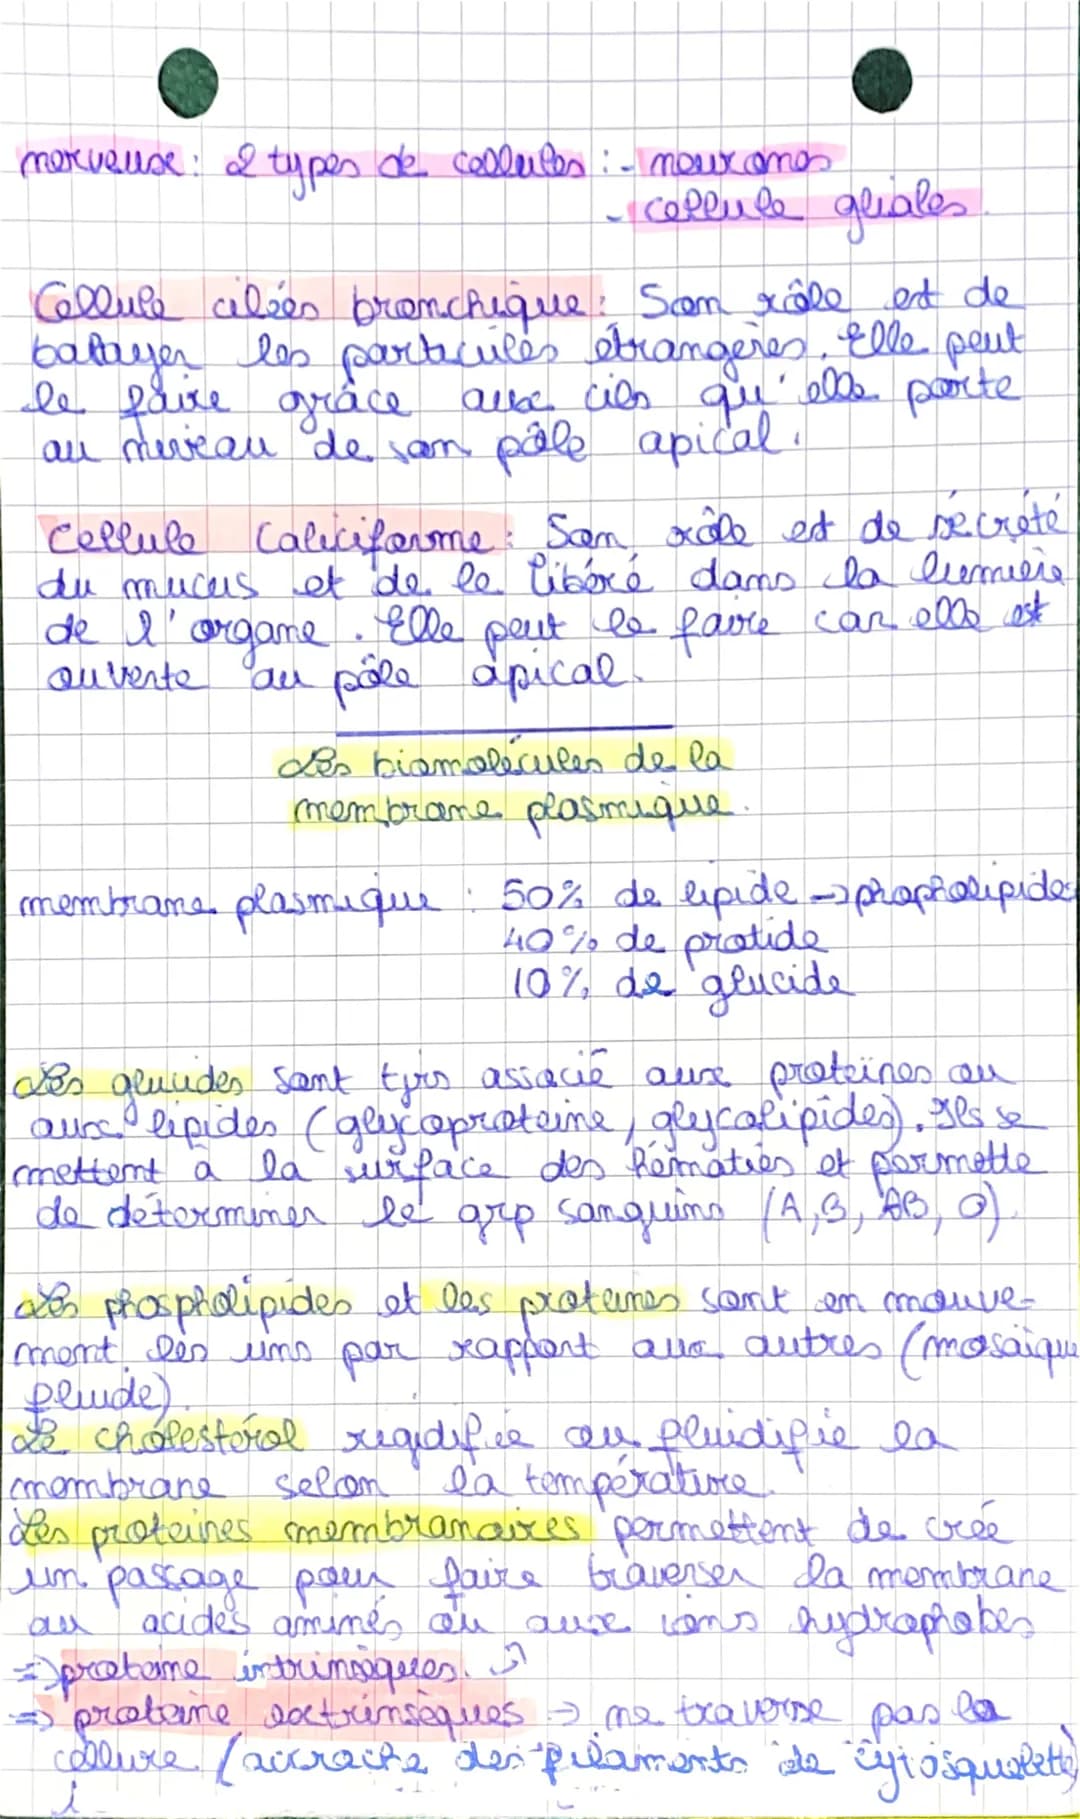 nerveuse : 2 types de cellules : - neurones
- cellule gliales
Cellule ciliées bronchique : Son rôle est de
balayer les particules étrangères. Elle peut
le faire grâce aux cils qu'elle porte
au niveau de son pôle apical.
Cellule Caliciforme : Son rôle est de sécrété
du mucus et de le libéré dans la lumière
de l'organe. Elle peut le faire car elle est
ouverte au pôle apical.
Les biomolécules de la
membrane plasmique.
membrane plasmique : 50% de lipide → phospholipides
40% de protide
10% de glucide
Les glucides sont tjrs associé aux proteïnes ou
aux lipides (glycoproteine, glycolipides). Ils se
mettent à la surface des hématies et permette
de déterminer le grp sanguins (A, B, AB, O).
Les phospholipides et les proteines sont en mouve-
ment les uns par rapport aux autres (mosaïque
fluide).
Le cholestérol rigidifie ou fluidifie la
membrane selon la température.
Les proteines membranaires permettent de créé
un passage pour faire traverser la membrane
au acides aminés ou aux ions hydrophobes
=> proteine intrinsèques.
=> proteine extrinsèques → ne traverse pas la
cellule (accroche des filaments de cytosquelette)